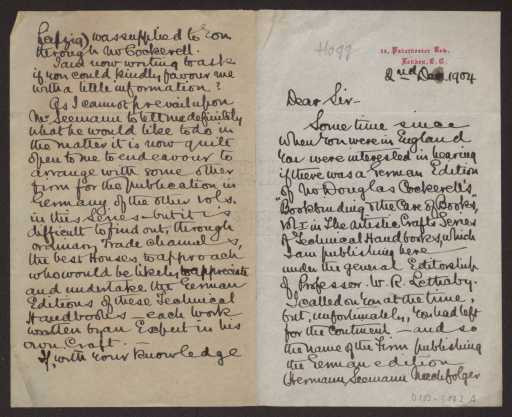 Hogg
20, Paternoster Row,
London, E. C.
2nd Dec 1904
Dear Sir-
Some time since
when you were in England
you were interested in hearing
if there was a German Edition
of Mr Douglas Cockerell's
"Bookbinding & the Care of Books,"
Vol I in The Artistic Crafts Series
of Technical Handbooks, which
I am publishing here
under the general Editorship
of Professor W. R. Lethaby.
I called on you at the time,
but, unfortunately, you had left
for the Continent - and so
the name of the Firm publishing
the German edition
(Hermann Seemann Nachfolger
Leipzig) was supplied to you
through Mr Cockerell.
I am now writing to ask
if you could kindly favour me
with a little information?
As I cannot prevail upon
Mr Seemann to tell me definitely
what he would like to do in
the matter it is now quite
open to me to endeavour to
arrange with some other
firm for the publication in
Germany of the other vols.
in this Series - but it is
difficult to find out, through
ordinary Trade channels,
the best Houses to approach
who would be likely to appreciate
and undertake the German
Editions of these Technical
Handbooks - each work
written by an Expert in his
own Craft.
If, with your knowledge